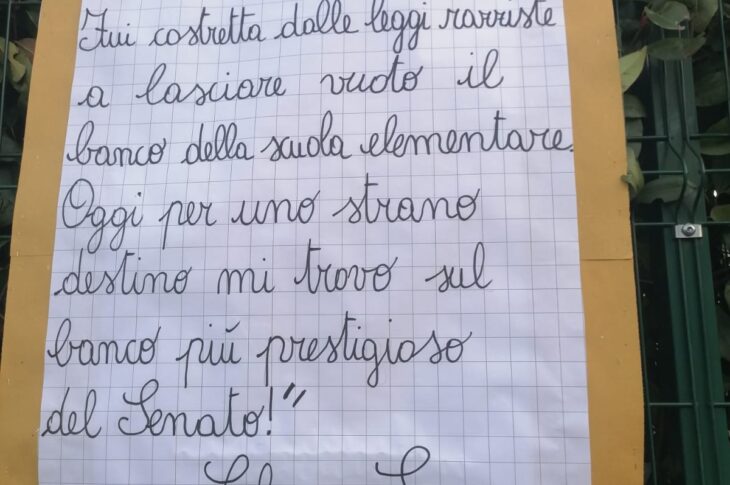 Fui costretta dalle leggi razziste
a lasciare vuoto il
banco della scuola elementare.
Oggi per uno strano
destino mi trovo sul
banco più prestigioso
del Senato!"